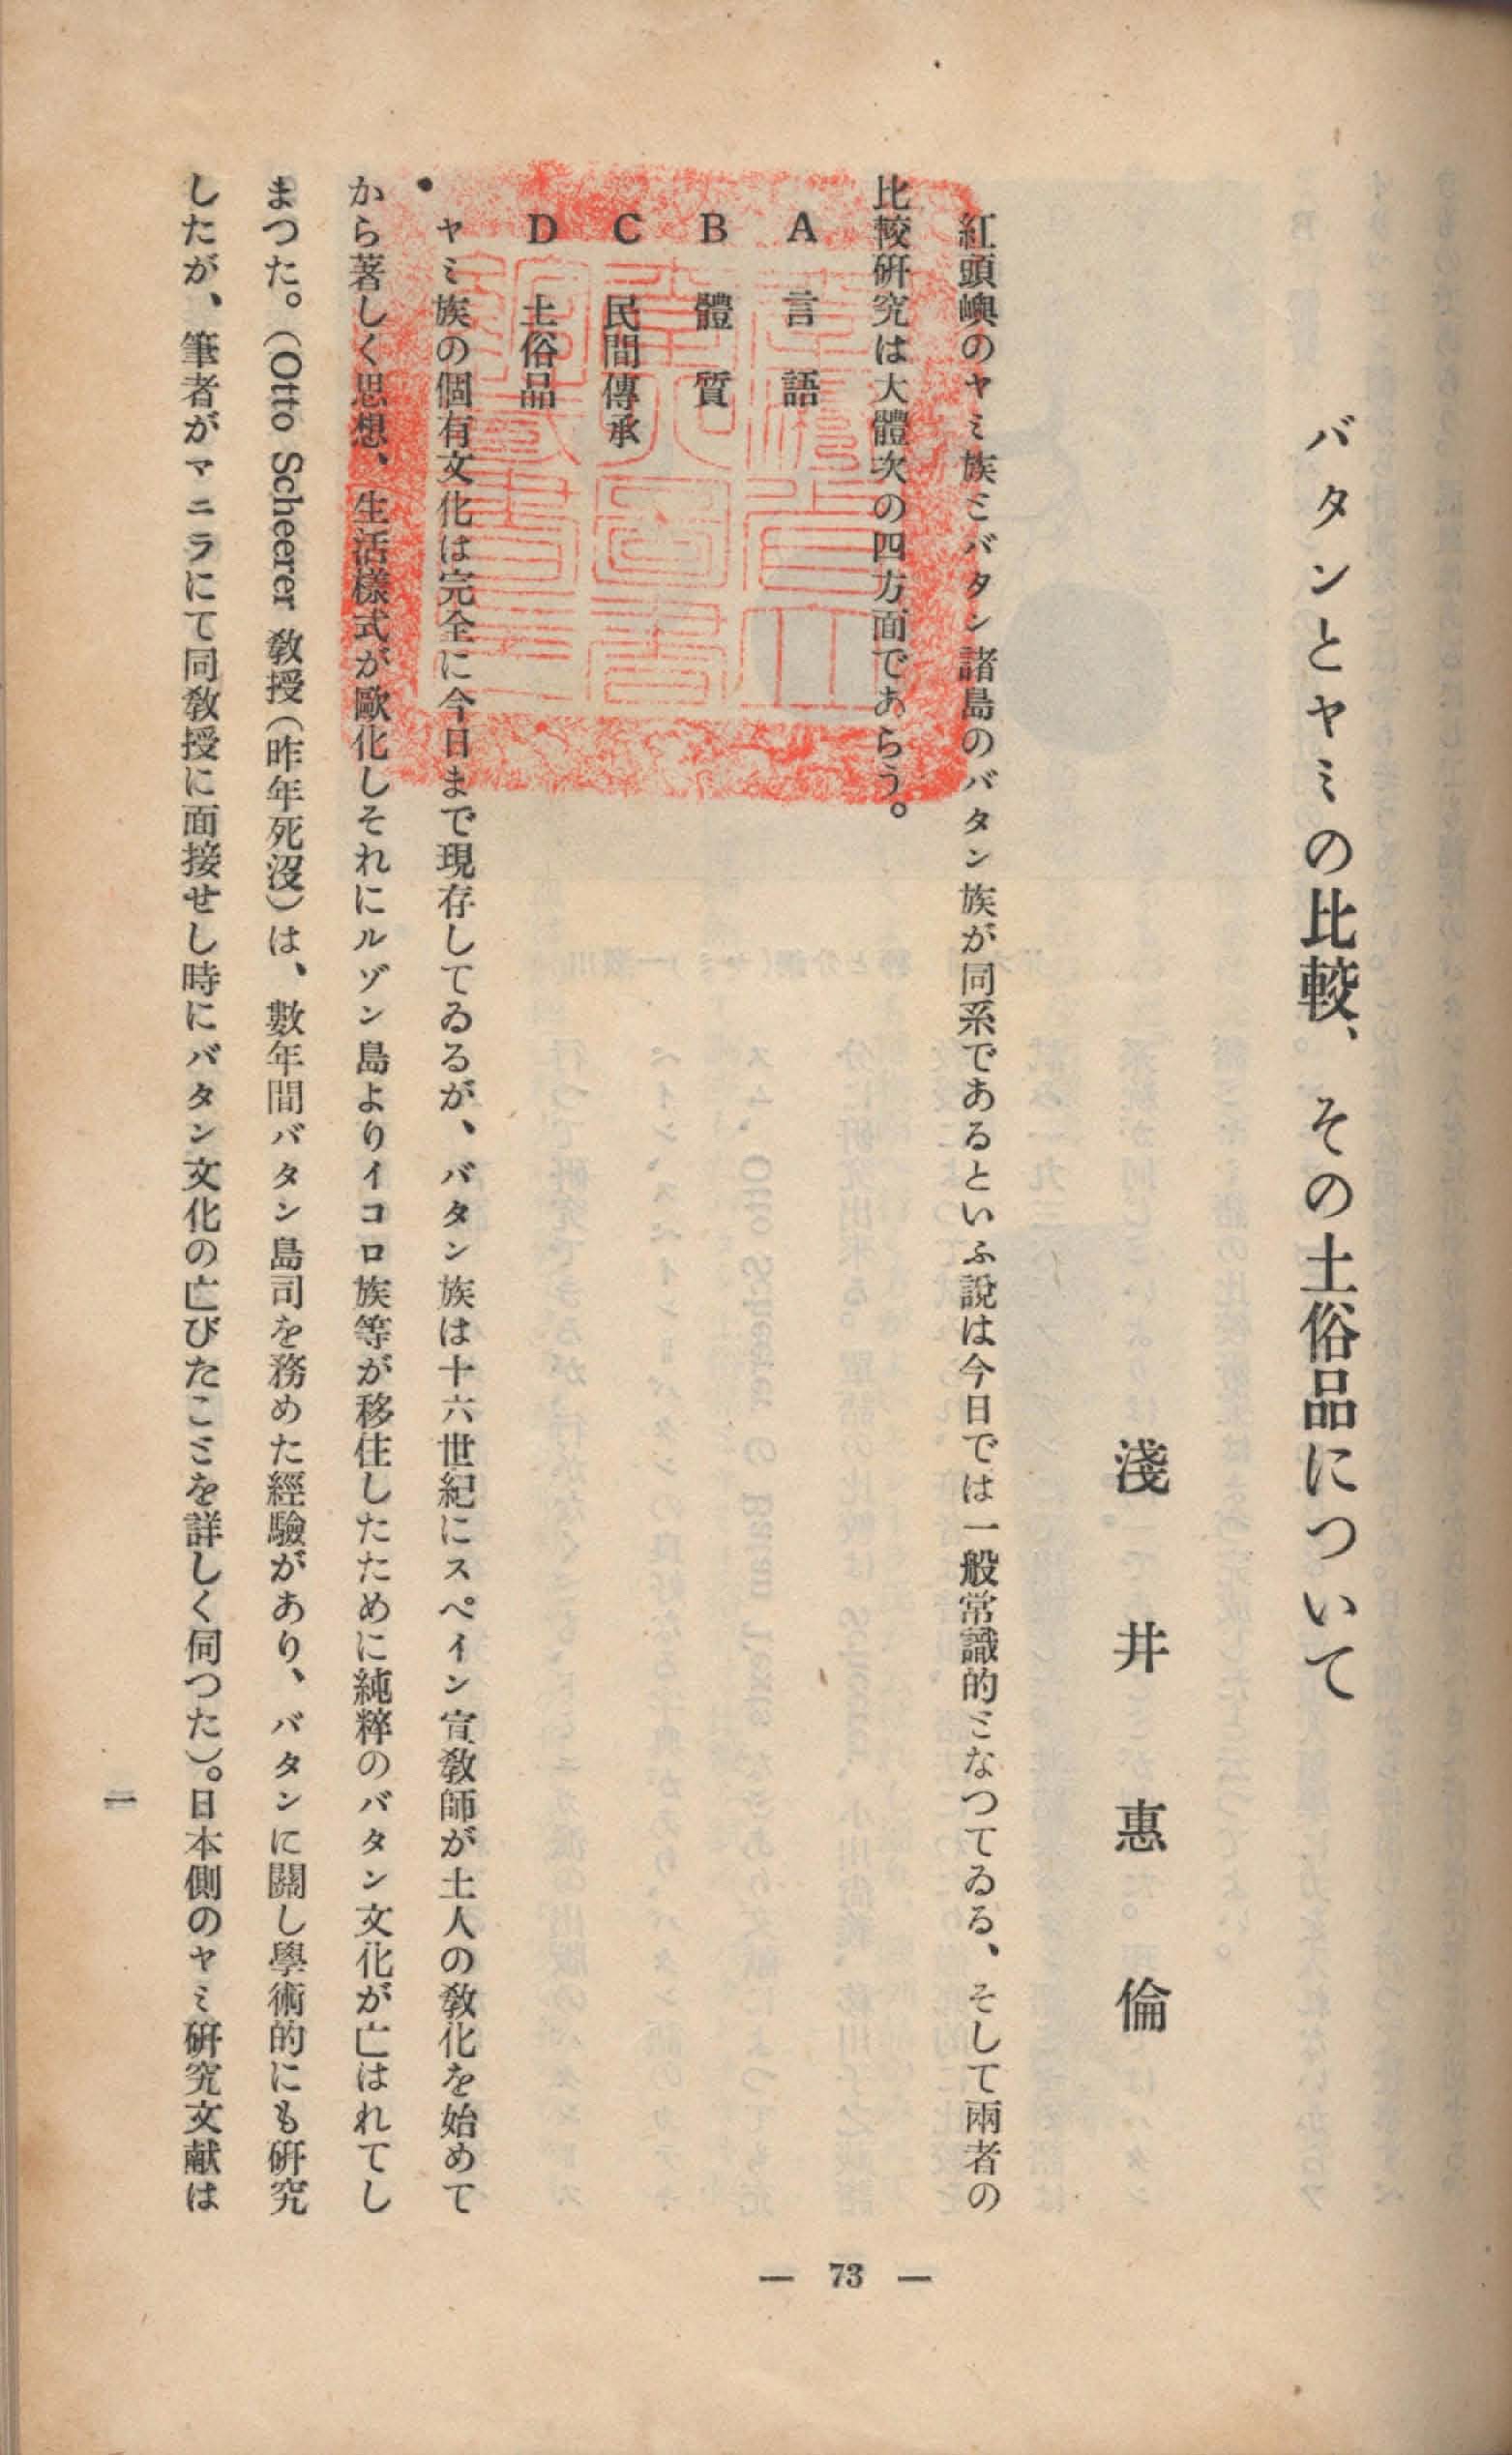 バタンとヤミの比較、その土俗品について
淺井惠倫
紅頭嶼のヤミ族ミバタン諸島のバタン族が同系であるといふ說は今日では一般常識的ミなつてゐる、そして兩者の
比較硏究は大體次の四方面であらう。
A 言語
B 體質
C 民間傳承
D 土俗品
ヤミ族の個有文化は完全に今日まで現存してゐるが、バタン族は十六世紀にスペイン宣敎師が土人の敎化を始めて
から著しく思想、生活樣式が歐化しそれにルゾン島よりイコロ族等が移住したために純粹のバタン文化が亡はれてし
まつた。(Otto Scheerer 敎授(昨年死沒)は、數年間バタン島司を務めた經驗があり、バタンに關し學術的にも硏究
したが、筆者がマニラにて同敎授に面接せし時にバタン文化の亡びたこミを詳しく伺つた)。日本側のヤミ硏究文献は
一
— 73 —